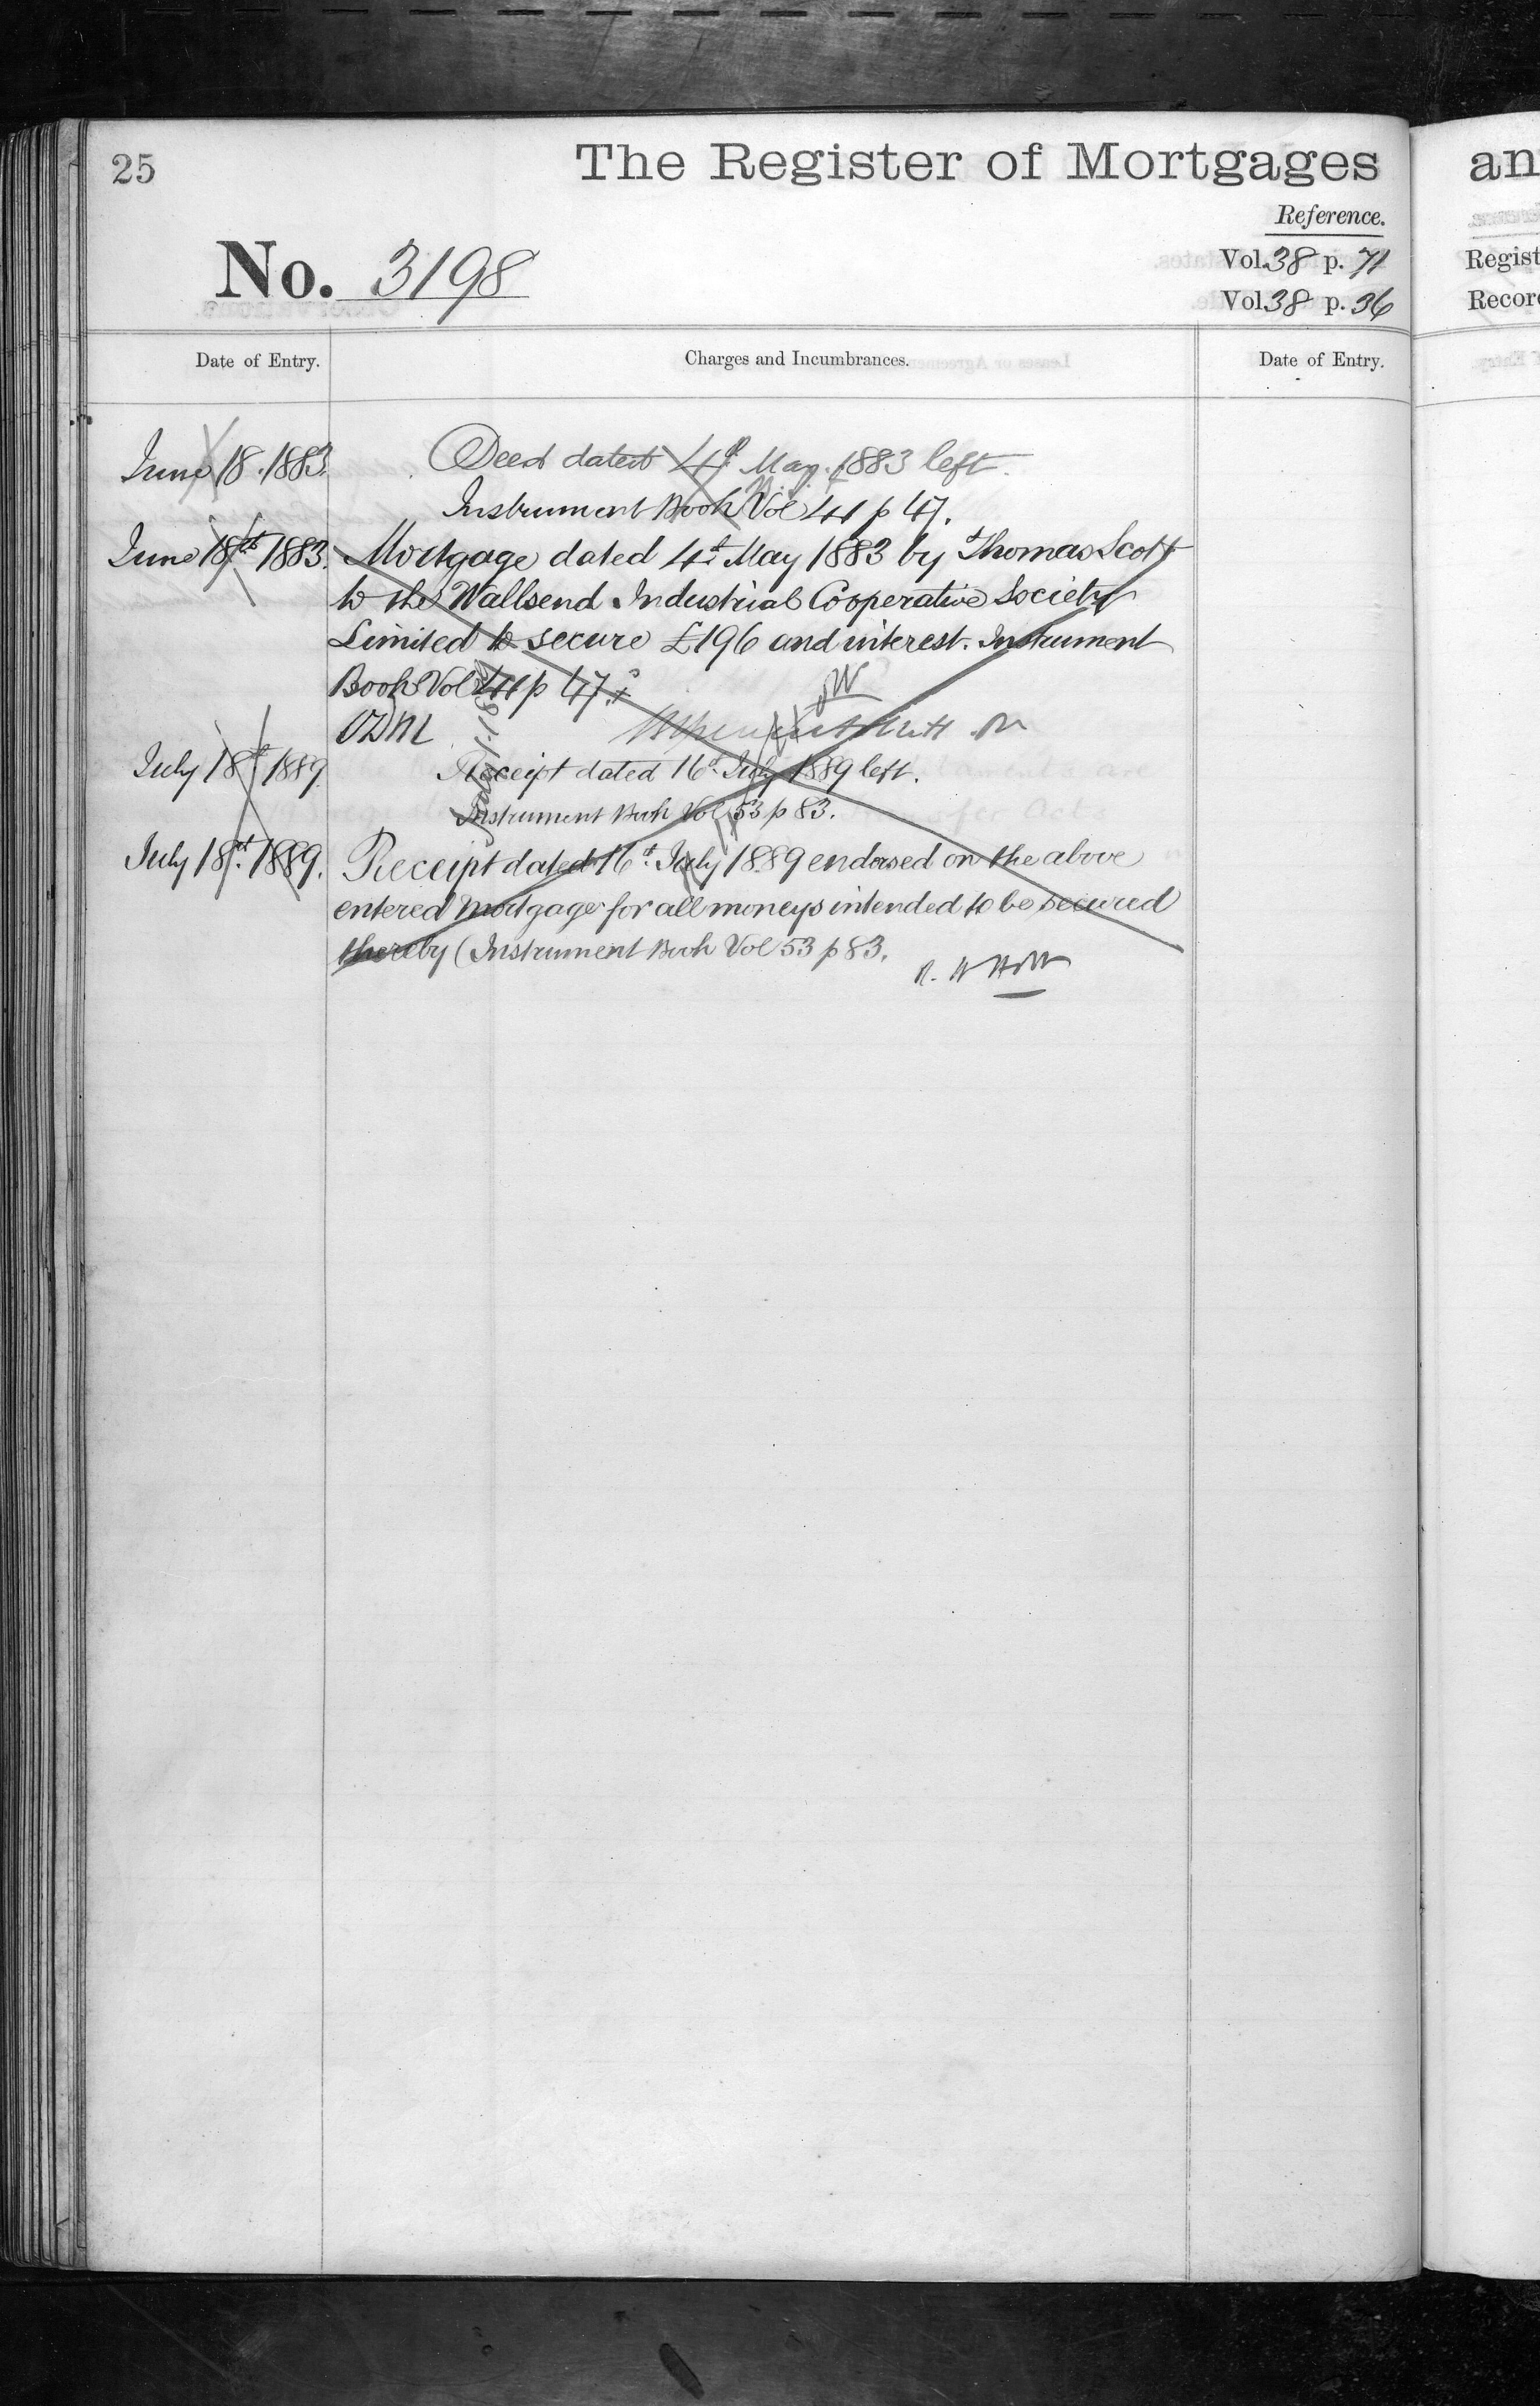 25
The Register of Mortgages
Reference.
No. 3198
Vol. 38 p. 71
Vol 38 p. 36
Date of Entry.
Charges and Incumbrances.
Date of Entry.
June 18. 1883. Deed dated 4th May 1883 left.
Instrument Book Vol 41 p 47.
June 18th 1883. Mortgage dated 4th May 1883 by Thomas Scott
to the Wallsend Industrial Cooperative Society
Limited to secure £196 and interest. Instrument
Book Vol 41 p 47.
July 18th 1889 Receipt dated 16th July 1889 left.
Instrument Book Vol 53 p 83.
July 18th 1889. Receipt dated 16th July 1889 endorsed on the above
entered Mortgage for all moneys intended to be secured
thereby (Instrument Book Vol 53 p 83.
an
Regist
Recor